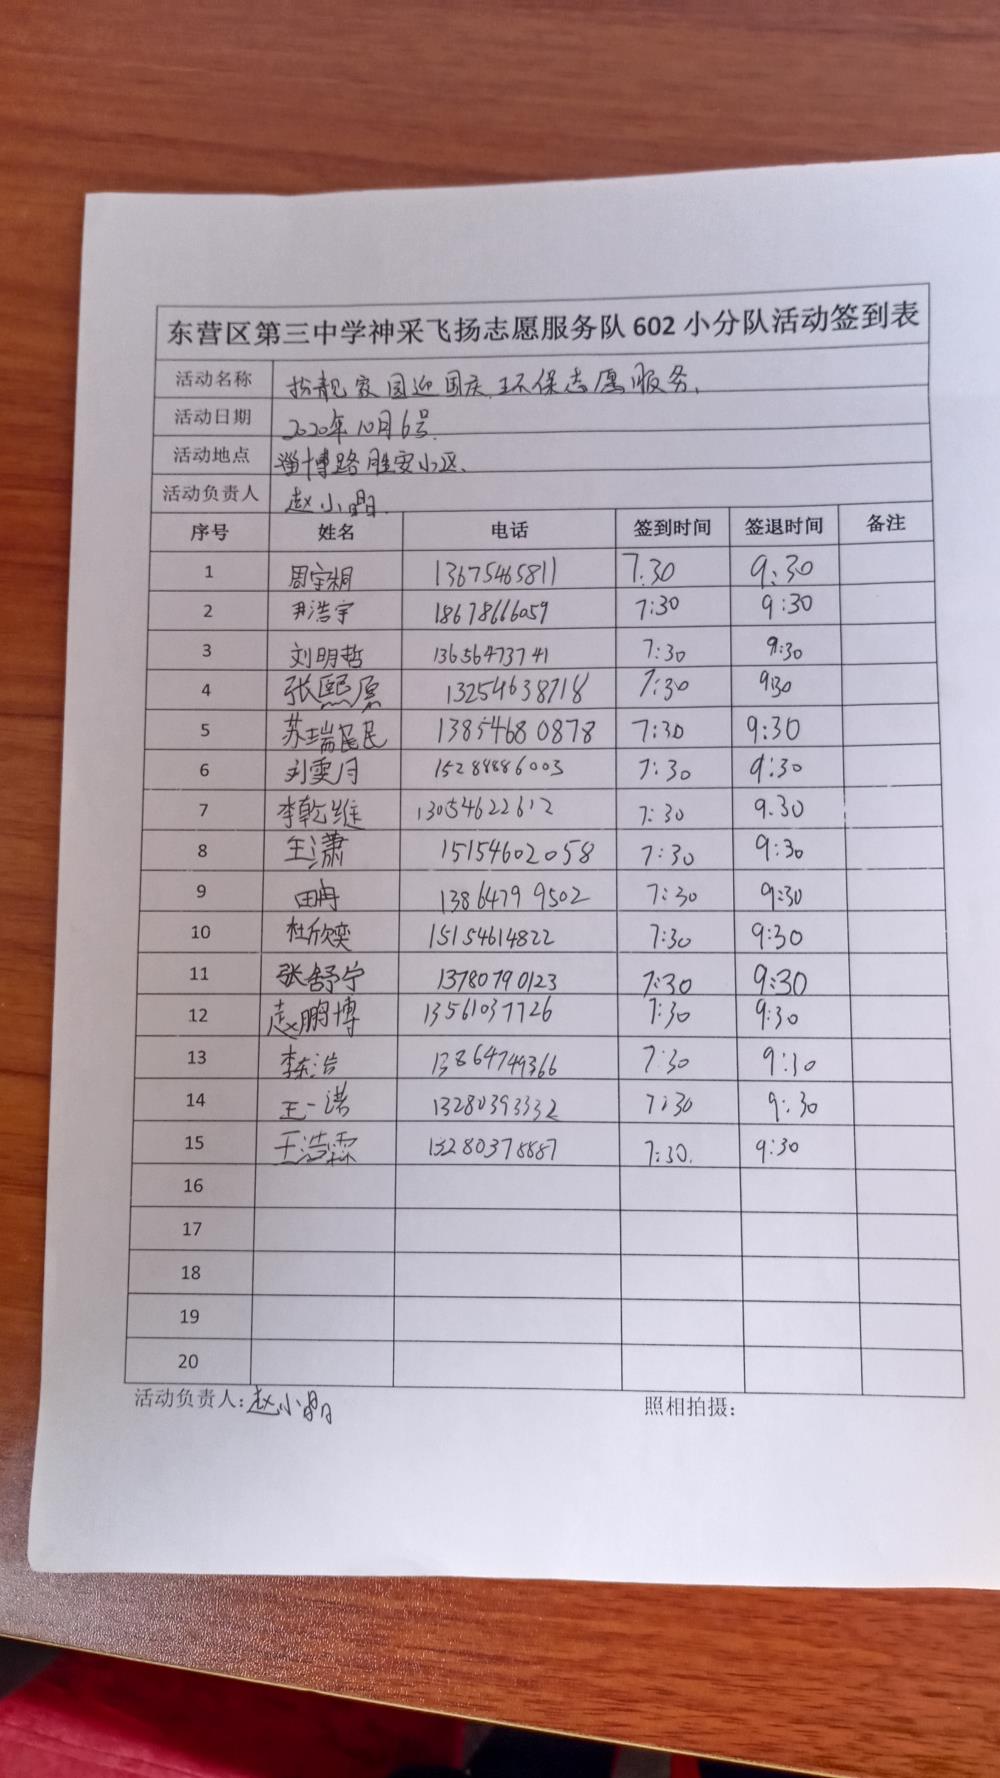 东营区第三中学神采飞扬志愿服务队602小分队活动签到表
活动名称 扮靓家园迎国庆环保志愿服务.
活动日期 2020年10月6号.
活动地点 淄博路胜安小区.
活动负责人 赵小晶.
序号 姓名 电话 签到时间 签退时间 备注
1 周宇桐 13675465811 7:30 9:30
2 尹浩宇 18678666059 7:30 9:30
3 刘明哲 13656473741 7:30 9:30
4 张熙原 13254638718 7:30 9:30
5 苏瑞民民 13854680878 7:30 9:30
6 刘雯月 15288886003 7:30 9:30
7 李乾维 13054622612 7:30 9.30
8 王潇 15154602058 7:30 9:30
9 田冉 13864799502 7:30 9:30
10 杜欣奕 15154614822 7:30 9:30
11 张舒宁 13780790123 7:30 9:30
12 赵鹏博 13561037726 7:30 9:30
13 李东浩 13864749366 7:30 9:30
14 王一诺 13280393332 7:30 9:30
15 王浩霖 13280378887 7:30. 9:30
16
17
18
19
20
活动负责人:赵小晶 照相拍摄: